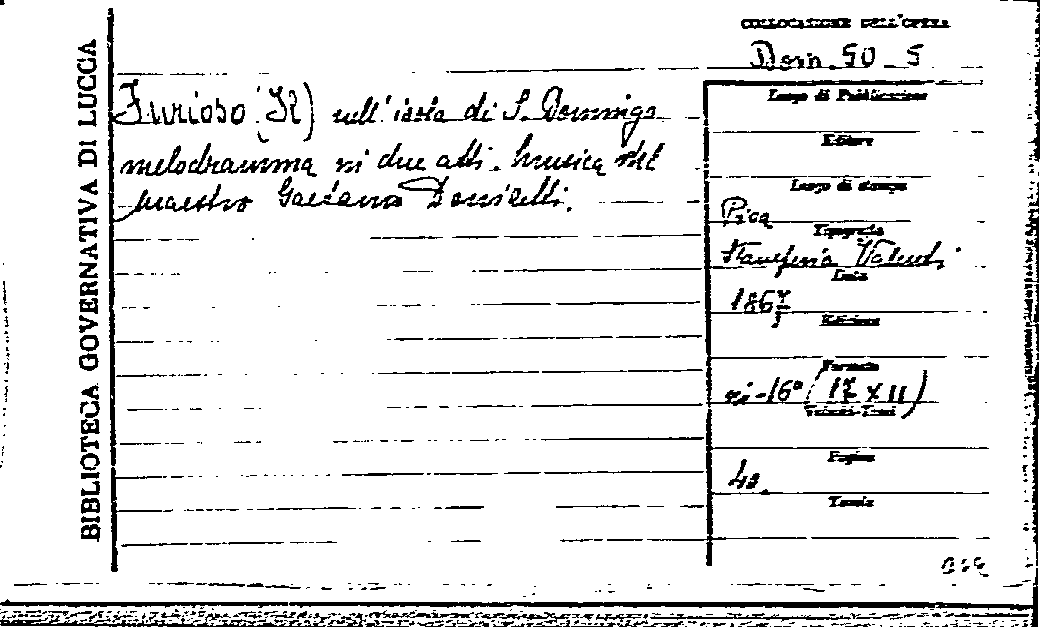 BIBLIOTECA GOVERNATIVA DI LUCCA
COLLOCAZIONE DELL'OPERA
Dom. 50 - 5
Furioso (Il) nell'isola di S. Domingo
melodramma in due atti. Musica del
maestro Gaetano Donizetti.
Luogo di Pubblicazione
Editore
Luogo di stampa
Pisa
Tipografia
Stamperia Valenti
Data
1867
Edizione
Formato
in-16° (17 x 11)
Volumi-Tomi
Pagine
40.
Tavole